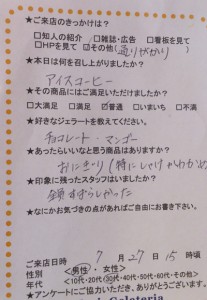 ★ご来店のきっかけは?
□知人の紹介 □雑誌・広告 □看板を見て
□HPを見て ☑その他(通りがかり)
★本日は何を召し上りましたか?
アイスコーヒー
★その商品にはご満足いただけましたか?
□大満足 □満足 ☑普通 □いまいち □不満
★好きなジェラートを教えてください。
チョコレート・マンゴー
★あったらいいなと思う商品はありますか?
おにぎり(特にしゃけ
★印象に残ったスタッフはいましたか?
★なにかお気づきの点があればご自由にお書き下さい。
ご来店日時 7月27日15時頃
性別 <男性・女性>
年代 <10代・20代・30代・40代・50代・60代・その他>
★アンケートにご協力いただき、ありがとうございます。